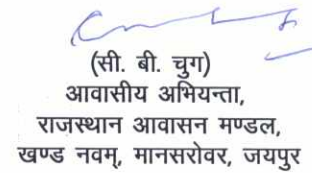 (सी. बी. चुग)
आवासीय अभियन्ता,
राजस्थान आवासन मण्डल,
खण्ड नवम्, मानसरोवर, जयपुर